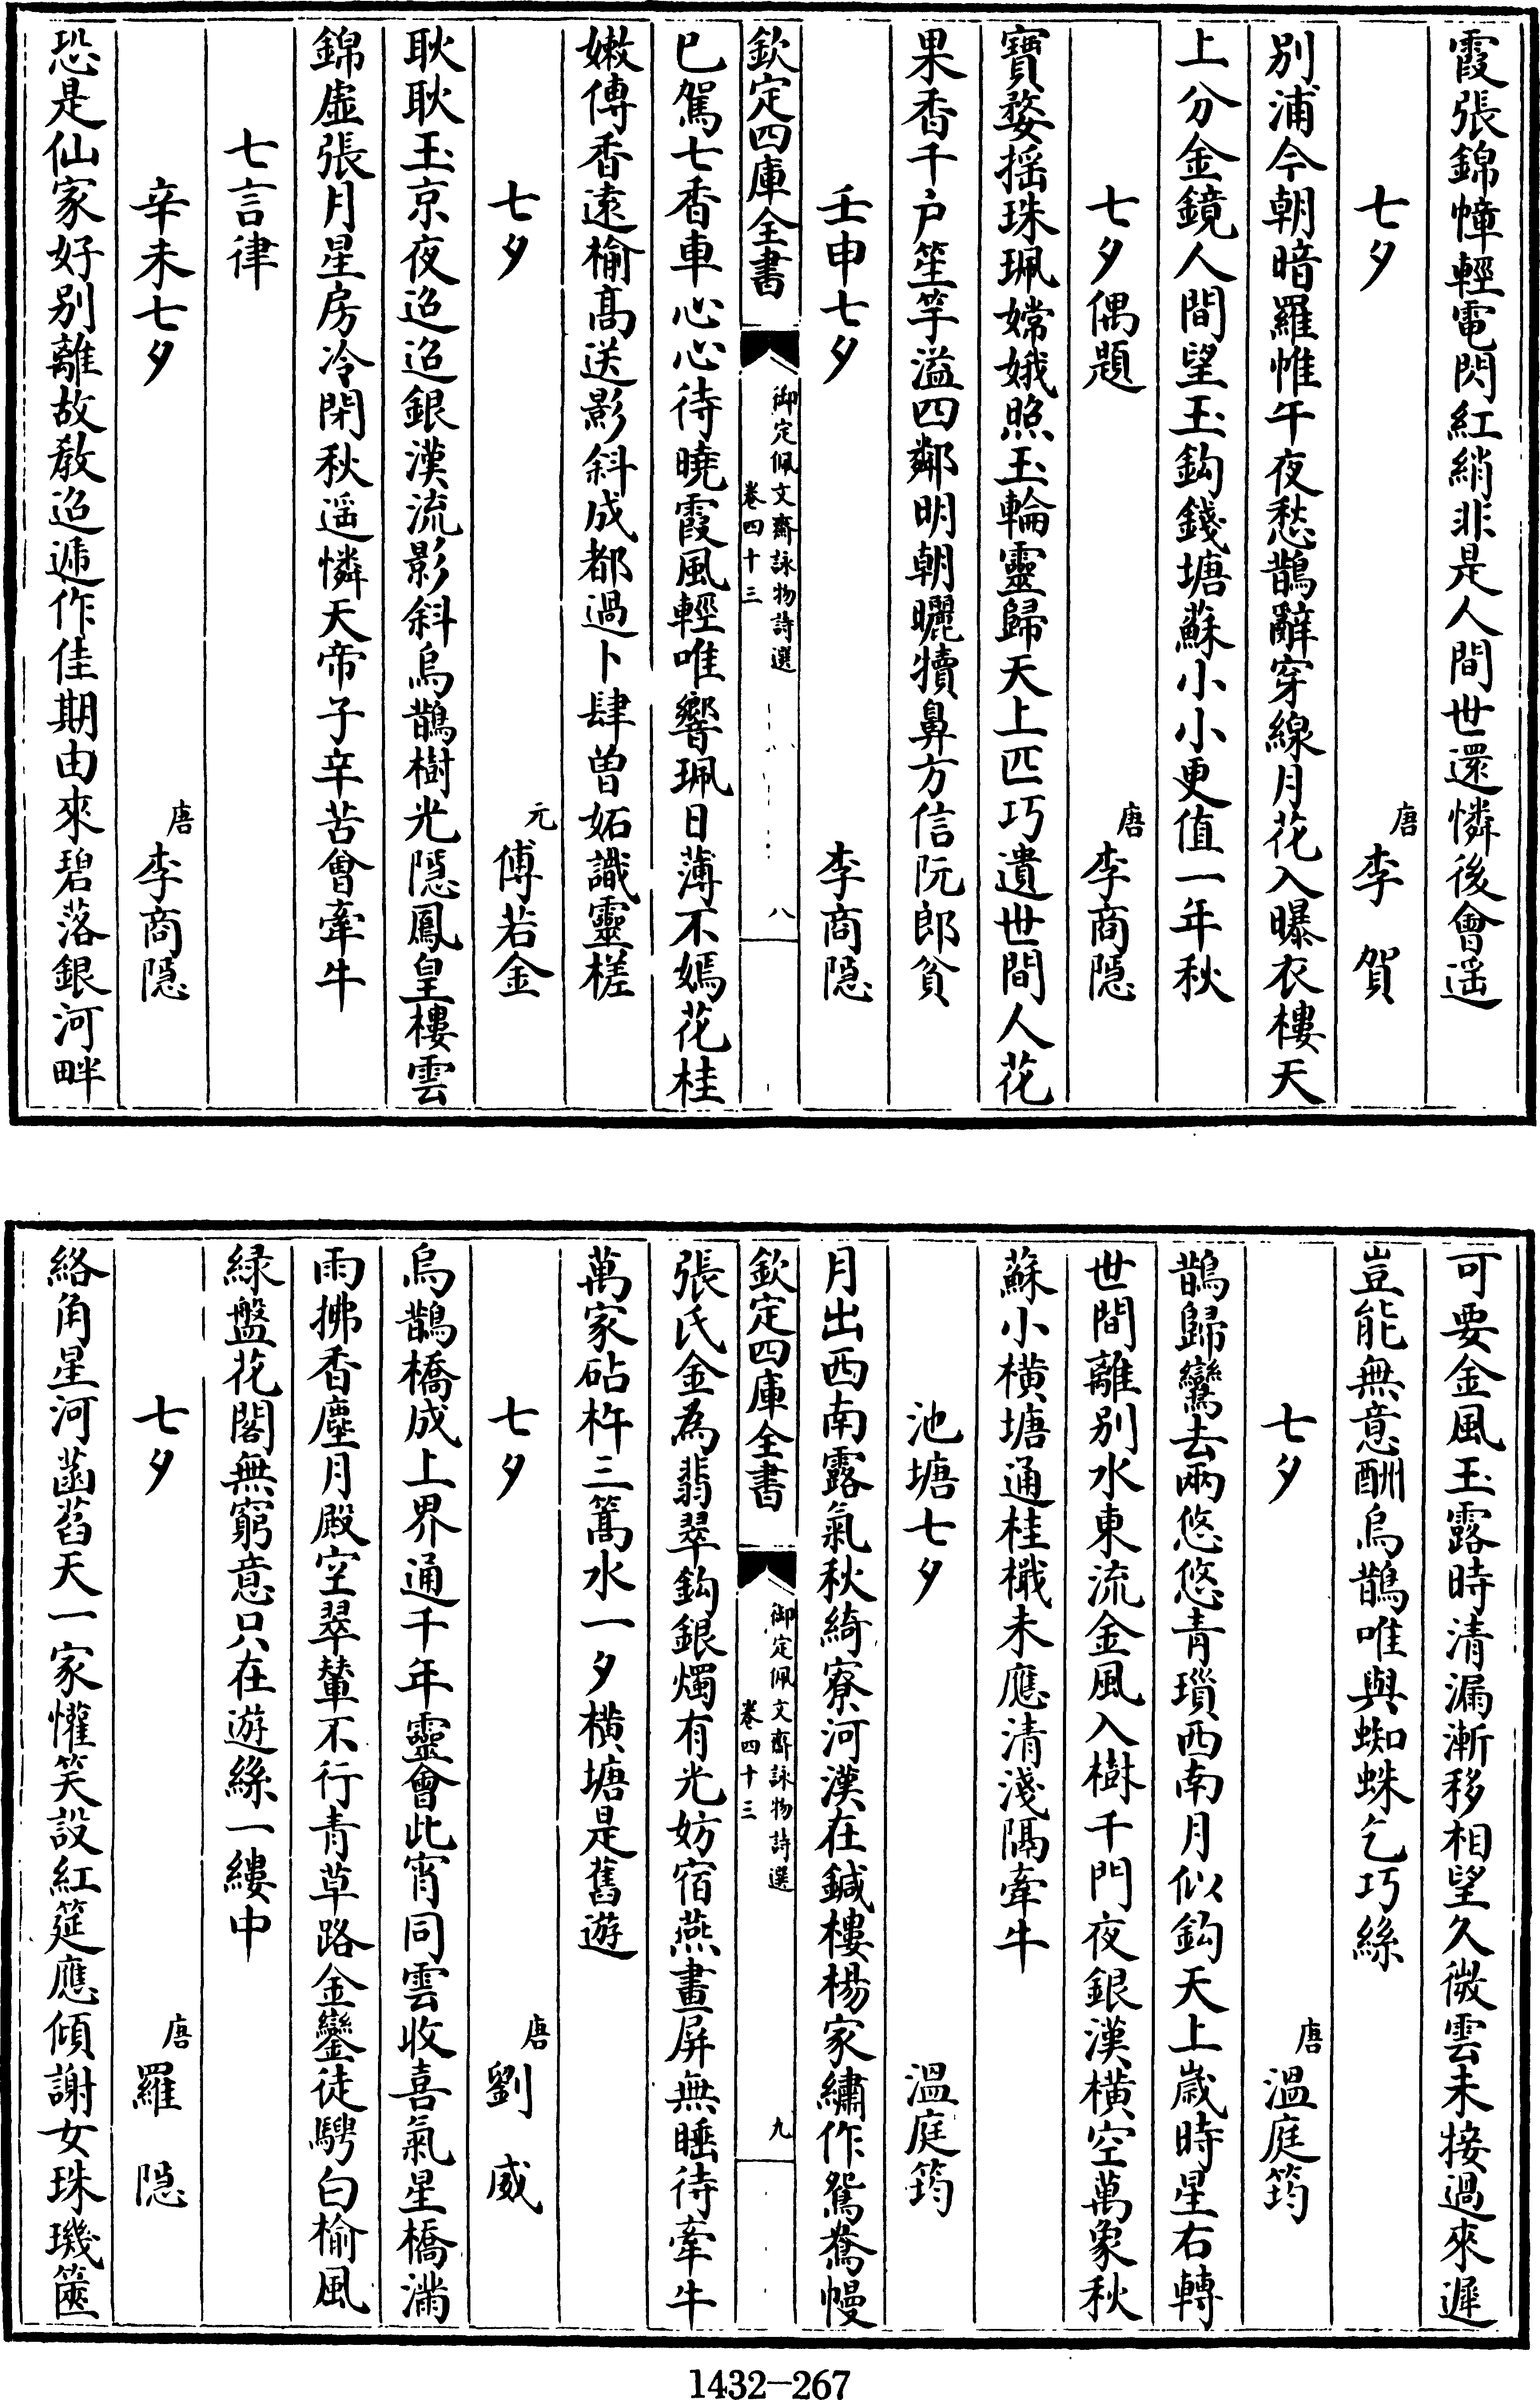 霞張錦幛輕電閃紅綃非是人間世還憐後會遥
七夕 唐 李賀
别浦今朝暗羅帷午夜愁鵲辭穿線月花入曝衣樓天
上分金鏡人間望玉鈎錢塘蘇小小更值一年秋
七夕偶題 唐 李商隱
寶婺揺珠珮嫦娥照玉輪靈歸天上匹巧遺世間人花
果香千户笙竽溢四鄰明朝曬犢鼻方信阮郎貧
壬申七夕 李商隱
欽定四庫全書 御定佩文齋詠物詩選 卷四十三 八
已駕七香車心心待曉霞風輕唯響珮日薄不嫣花桂
嫩傳香遠榆髙送影斜成都過卜肆曽妬識靈槎
七夕 元 傅若金
耿耿玉京夜迢迢銀漢流影斜烏鵲樹光隱鳳皇樓雲
錦虚張月星房冷閉秋遥憐天帝子辛苦會牽牛
七言律
辛未七夕 唐 李商隱
恐是仙家好别離故教迢遞作佳期由來碧落銀河畔
可要金風玉露時清漏漸移相望久微雲未接過來遲
豈能無意酬烏鵲唯與蜘蛛乞巧絲
七夕 唐 温庭筠
鵲歸鸞去兩悠悠青瑣西南月似鈎天上歲時星右轉
世間離别水東流金風入樹千門夜銀漢横空萬象秋
蘇小横塘通桂檝未應清淺隔牽牛
池塘七夕 温庭筠
月出西南露氣秋綺寮河漢在鍼樓楊家繡作鴛鴦幔
欽定四庫全書 御定佩文齋詠物詩選 卷四十三 九
張氏金為翡翠鈎銀燭有光妨宿燕畫屏無睡待牽牛
萬家砧杵三篙水一夕横塘是舊遊
七夕 唐 劉威
烏鵲橋成上界通千年靈會此宵同雲收喜氣星橋滿
雨拂香塵月殿空翠輦不行青草路金鑾徒騁白榆風
緑盤花閣無窮意只在遊絲一縷中
七夕 唐 羅隱
絡角星河菡萏天一家懽笑設紅筵應傾謝女珠璣篋
1432-267